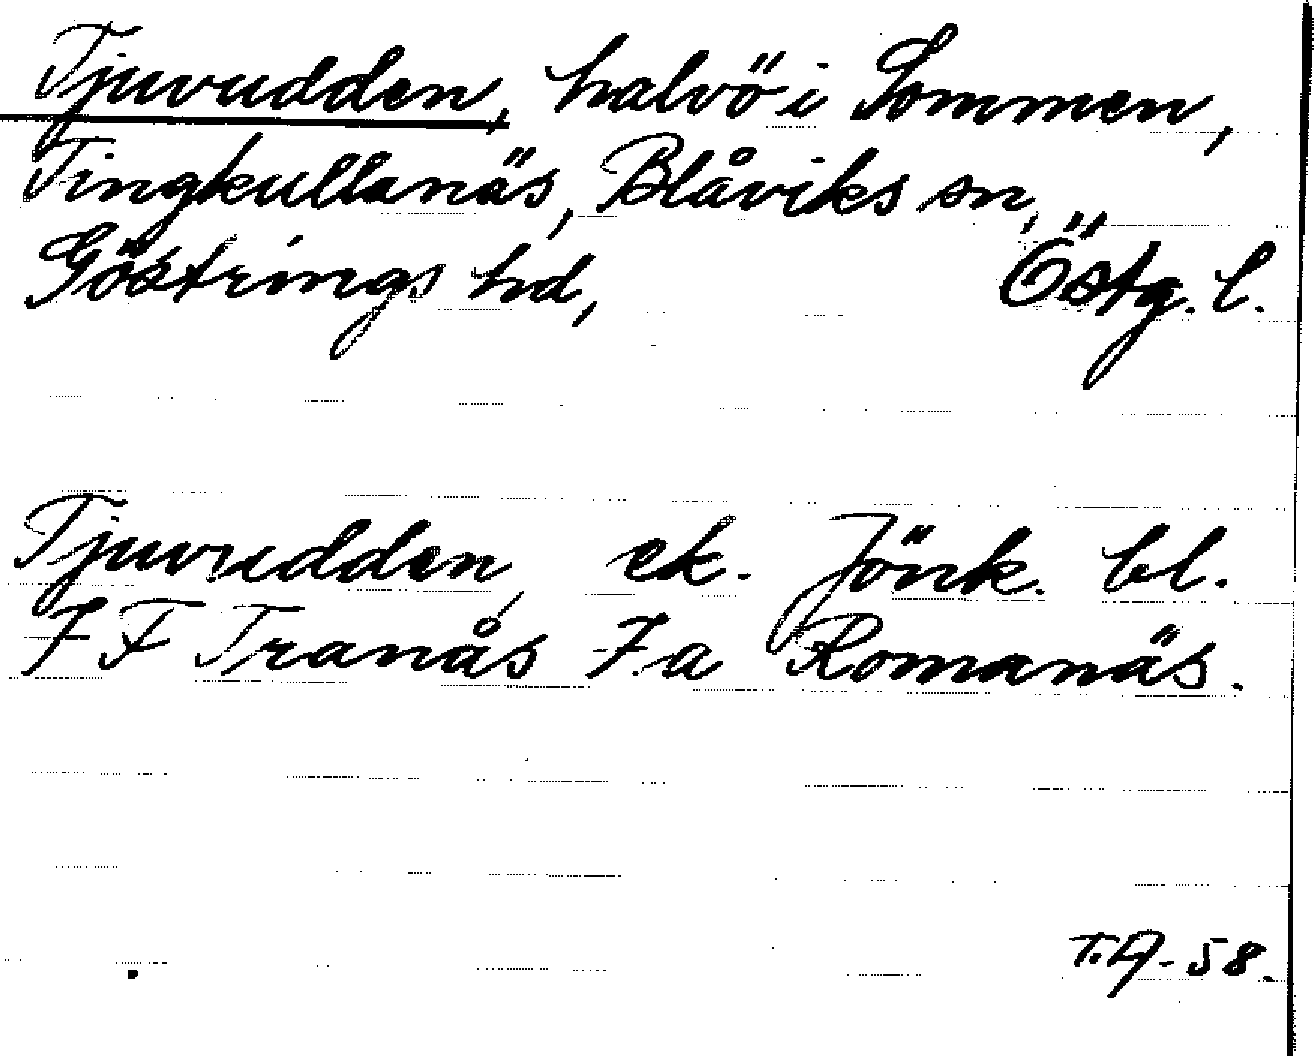 Tjuvudden, halvö i Sommen,
Tingkullanäs, Blåviks sn,
Göstrings hd, Östg. l.
Tjuvudden, ek. Jönk. bl.
7 F Tranås 7 a Romanäs.
T.A-58.